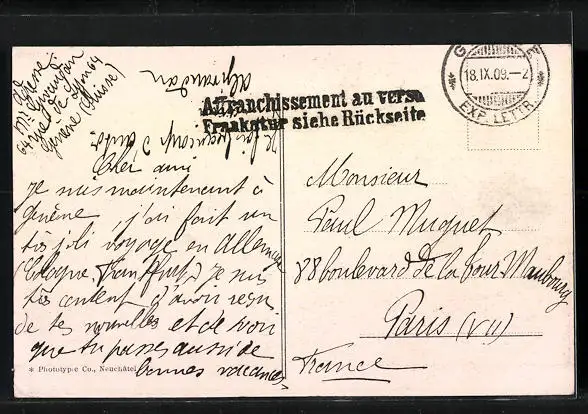 Adresse
Mr Giraudan
64 rue de Lyon 64
Genève (Suisse)
Affranchissement au verso
Frankatur siehe Rückseite
18.IX.09.—2
EXP. LETTR.
Cher ami
Je suis maintenant à
Genève, j'ai fait un
très joli voyage en Allemagne
(Cologne, Francfurt) je suis
très content d'avoir reçu
de tes nouvelles et de voir
que tu passes aussi de
bonnes vacances
Monsieur
Paul Muguet
88 boulevard de la Tour Maubourg
Paris (VII)
France
* Phototypie Co., Neuchâtel